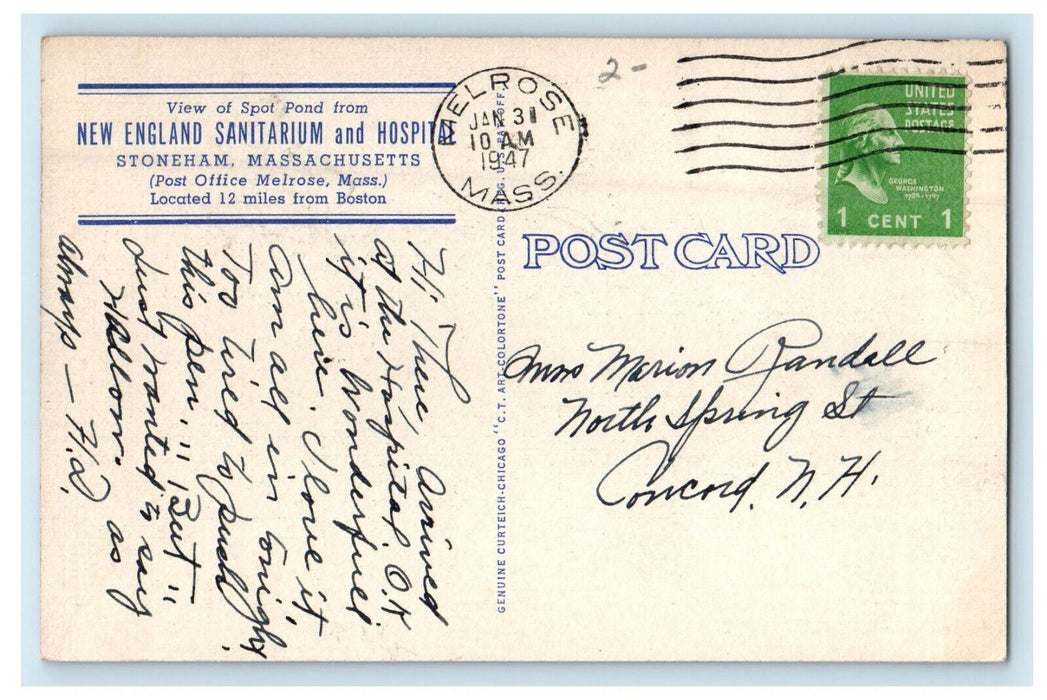 View of Spot Pond from
NEW ENGLAND SANITARIUM and HOSPITAL
STONEHAM, MASSACHUSETTS
(Post Office Melrose, Mass.)
Located 12 miles from Boston
MELROSE
JAN 31
10 AM
1947
MASS.
2-
UNITED
STATES
POSTAGE
GEORGE
WASHINGTON
1789-1797
1 CENT 1
POST CARD
GENUINE CURTEICH-CHICAGO "C.T. ART-COLORTONE" POST CARD (REG. U.S. PAT. OFF.)
Hi There, Arrived
at the Hospital O.K
it is wonderful
here. I love it
Am all in tonight,
Too tired to push
this pen. " But "
Just wanted to say
Hello. as
always — H.D.
Miss Marion Randall
North Spring St
Concord, N.H.